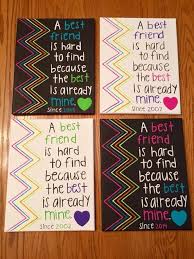 A best
friend
is hard
to find
because
the best
is already
mine.
since
A best
friend
is hard
to find
because
the best
is already
mine.
since 2002
A best
friend
is hard
to find
because
the best
is already
mine.
since 2002
A best
friend
is hard
to find
because
the best
is already
mine.
since